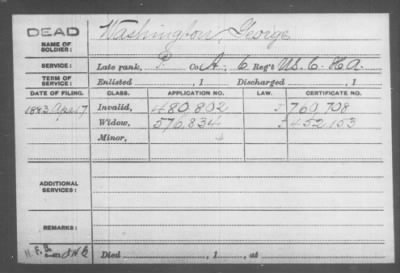 DEAD
NAME OF SOLDIER: Washington, George
SERVICE: Late rank, P. Co. A, 6 Reg't U.S.C. H.A.
TERM OF SERVICE: Enlisted , 1 Discharged , 1
DATE OF FILING. CLASS. APPLICATION NO. LAW. CERTIFICATE NO.
1883 Apr 17 Invalid, 480,802 760,708
Widow, 576,834 452,153
Minor,
ADDITIONAL SERVICES:
REMARKS:
Died , 1 , at